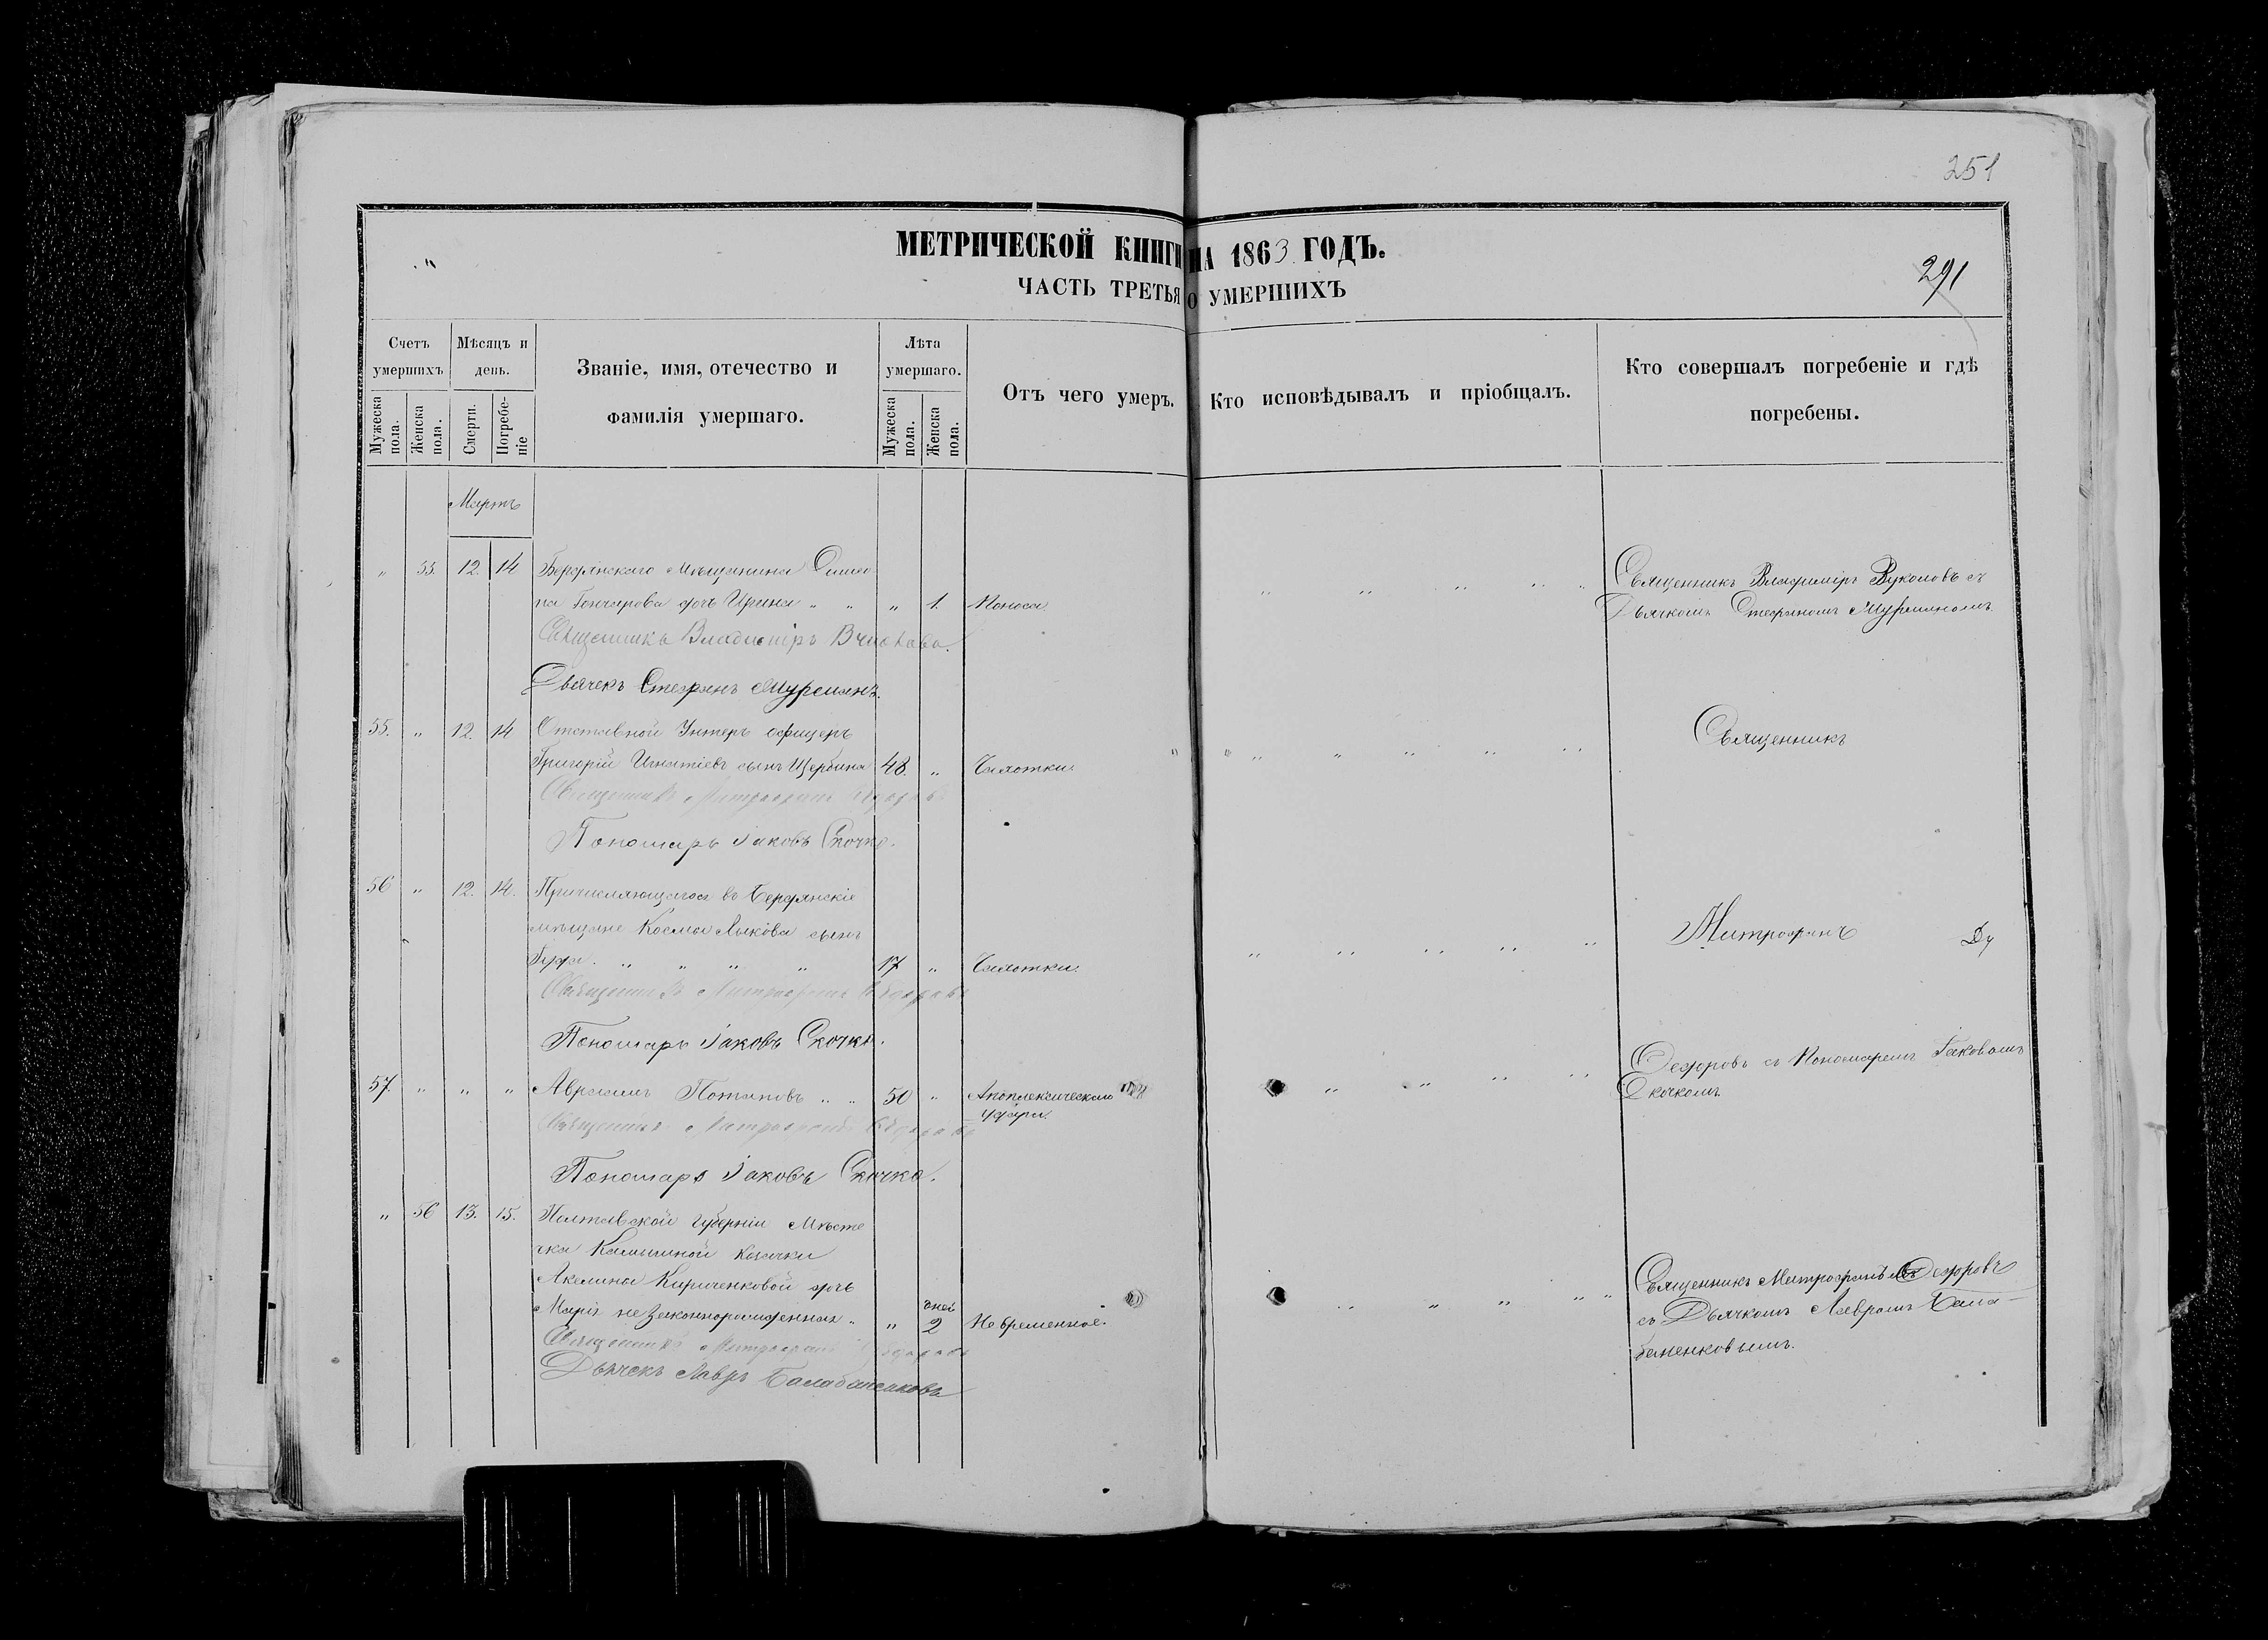 251
МЕТРИЧЕСКОЙ КНИГИ НА 1863 ГОДЪ.
291
ЧАСТЬ ТРЕТЬЯ О УМЕРШИХЪ
Счетъ умершихъ
Мѣсяцъ и день.
Званіе, имя, отечество и фамилія умершаго.
Лѣта умершаго.
Отъ чего умеръ.
Кто исповѣдывалъ и пріобщалъ.
Кто совершалъ погребеніе и гдѣ погребены.
Мужеска пола.
Женска пола.
Смерти.
Погребеніе
Мужеска пола.
Женска пола.
Мартъ
" 55. 12. 14 Бердянскаго мѣщанина Симео
на Гончарова дочь Ирина " " " 1. Поноса
Священникъ Владиміръ Вуколовъ съ
Дьячкомъ Стефаномъ Мурманомъ.
Священникъ Владиміръ
Дьячекъ Стефанъ Мурманъ.
55. " 12. 14 Отставной Унтеръ офицеръ
Григорій Игнатіевъ сынъ Щербина 48. " Чахотки
Священникъ
Священникъ Митрофанъ
Пономарь Іаковъ Скочко.
56 " 12. 14. Причисляющагося въ Бердянскіе
мѣщане Космы Лыкова сынъ
" " " " 17 " Чахотки.
Митрофанъ
Священникъ Митрофанъ
Пономарь Іаковъ Скочко.
57. " " " Авраамъ Потаповъ " " 50 " Апоплексическаго
удара.
Ѳедоровъ съ Пономаремъ Іаковомъ
Скочкомъ.
Священникъ Митрофанъ
Пономарь Іаковъ Скочко.
" 56 13. 15. Полтавской губерніи Мѣсте
чка Камышной козачки
Акелины Кириченковой дочь
Марія незаконнорожденная " " дней 2 Невременное.
Священникъ Митрофанъ Ѳедоровъ
съ Дьячкомъ Лавромъ Бала-
баненковымъ.
Священникъ Митрофанъ
Дьячекъ Лавръ Балабаненковъ